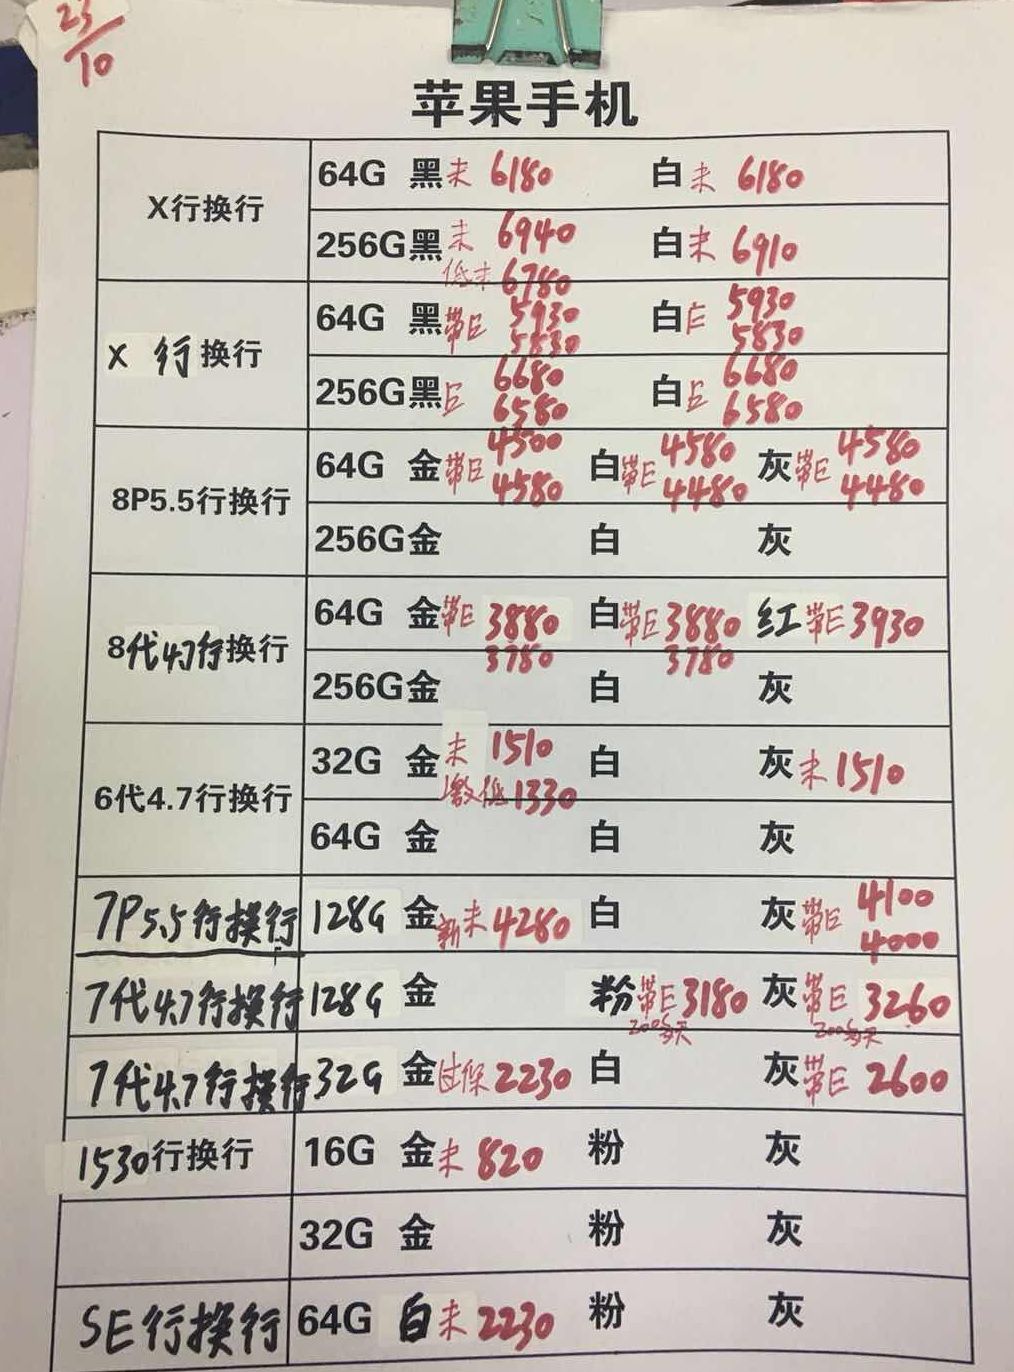 23/10
苹果手机
X行换行 64G 黑未 6180 白未 6180
256G黑未 6940 白未 6910
低未 6780
X 行换行 64G 黑带E 5930 白E 5930
5830 5830
256G黑E 6680 白E 6680
6580 6580
8P5.5行换行 64G 金带E 4500 白带E 4580 灰带E 4580
4580 4480 4480
256G金 白 灰
8代4.7行换行 64G 金带E 3880 白带E 3880 红带E 3930
3780 3780
256G金 白 灰
6代4.7行换行 32G 金未 1510 白 灰未 1510
激低 1330
64G 金 白 灰
7P5.5行换行 128G 金新未 4280 白 灰带E 4100
4000
7代4.7行换行 128G 金 粉带E 3180 灰带E 3260
200多天 200多天
7代4.7行换行 32G 金过保 2230 白 灰带E 2600
1530行换行 16G 金未 820 粉 灰
32G 金 粉 灰
SE行换行 64G 白未 2230 粉 灰